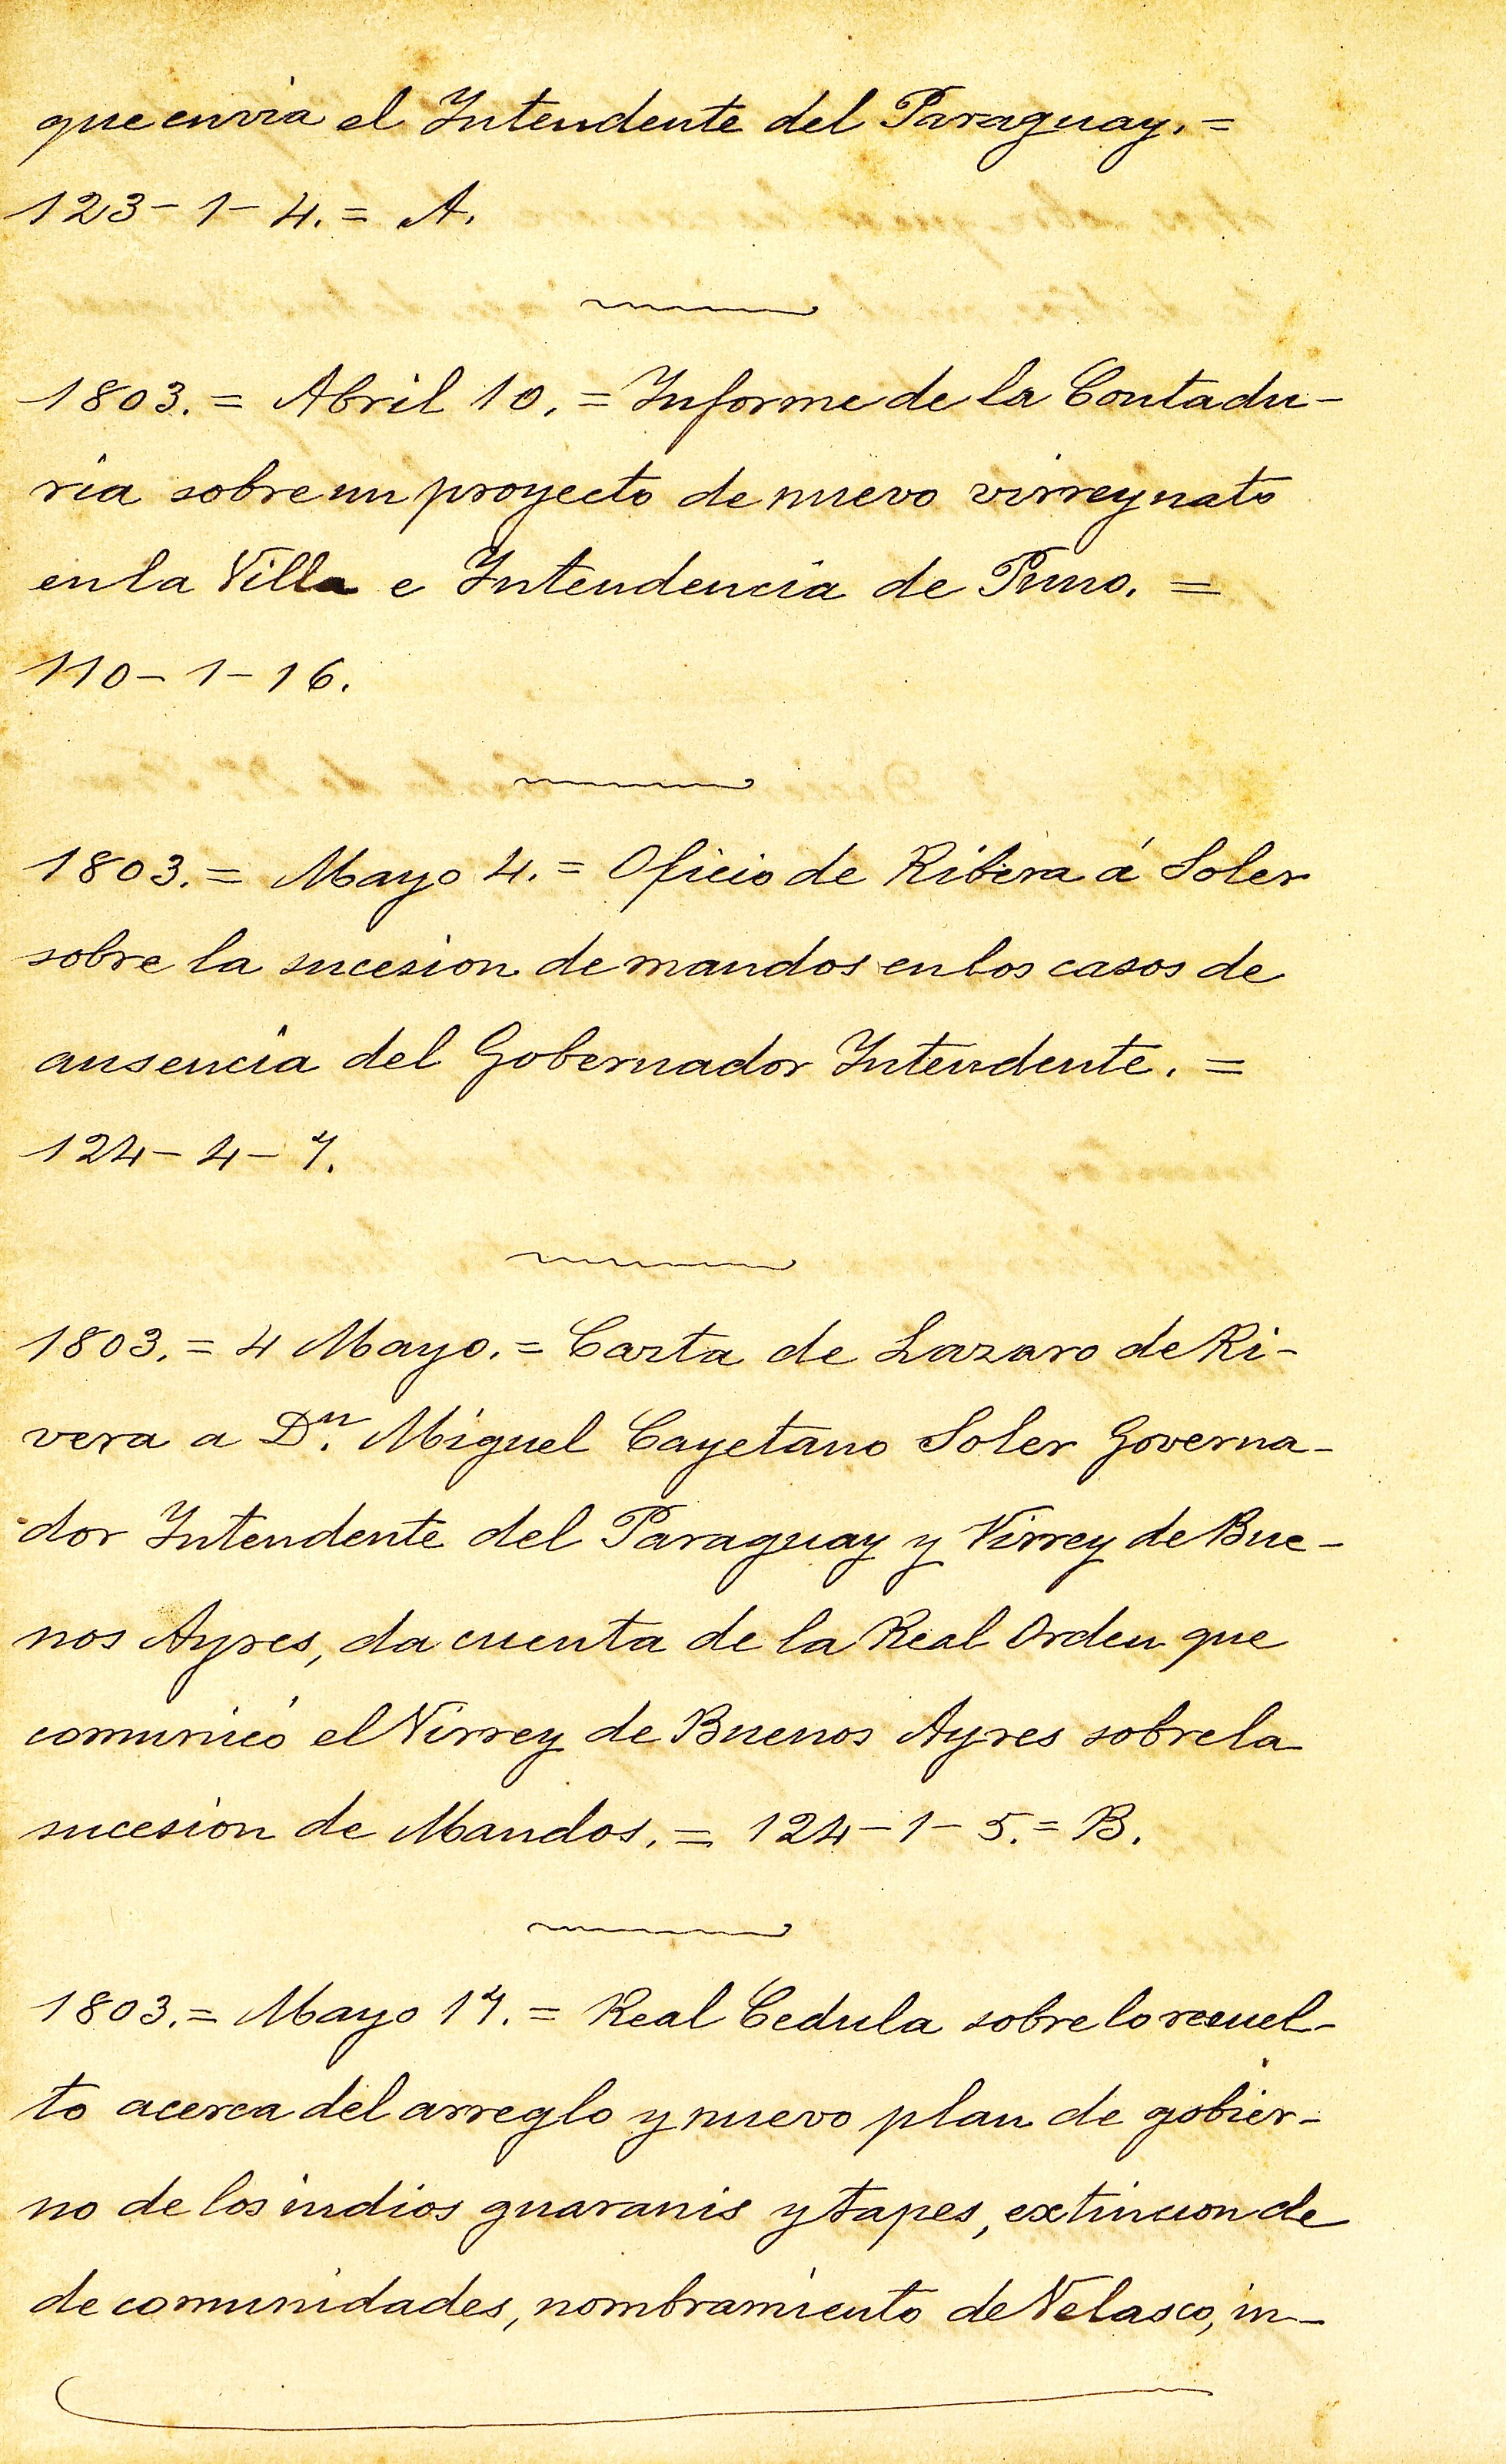 que envia el Intendente del Paraguay. =
123-1-4. = A.
1803. = Abril 10. = Informe de la Contadu-
ria sobre un proyecto de nuevo virreynato
en la Villa e Intendencia de Puno. =
110-1-16.
1803. = Mayo 4. = Oficio de Ribera á Soler
sobre la sucesion de mandos en los casos de
ausencia del Gobernador Intendente. =
124-4-7.
1803. = 4 Mayo. = Carta de Lazaro de Ri-
vera a Dn. Miguel Cayetano Soler Governa-
dor Intendente del Paraguay y Virrey de Bue-
nos Ayres, da cuenta de la Real Orden que
comunicó el Virrey de Buenos Ayres sobre la
sucesion de Mandos. = 124-1-5. = B.
1803. = Mayo 17. = Real Cedula sobre lo resuel-
to acerca del arreglo y nuevo plan de gobier-
no de los indios guaranis y tapes, extincion de
de comunidades, nombramiento de Velasco, in-